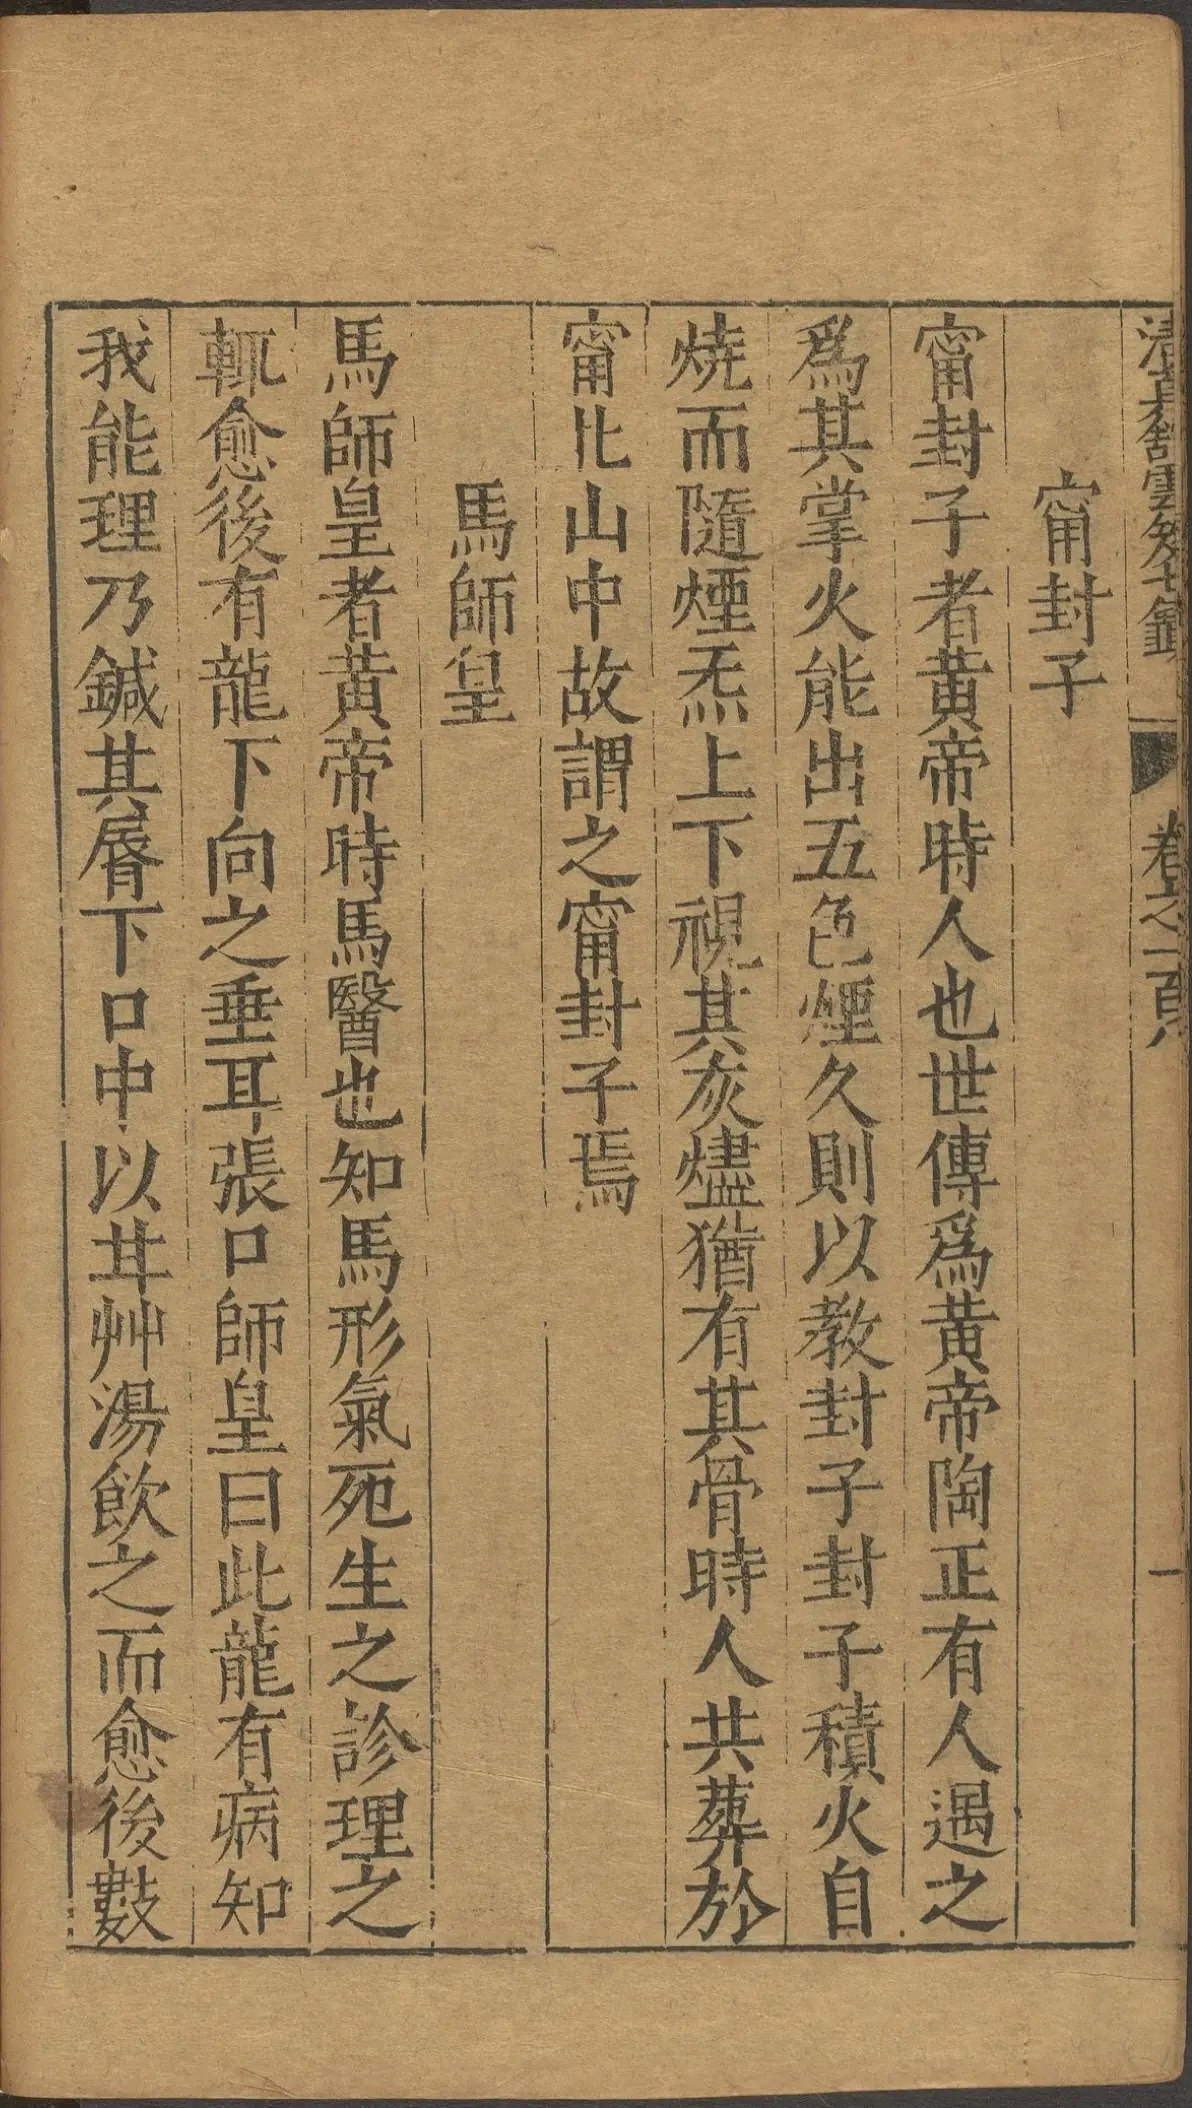 清真舘雲笈七籤 卷之一百八 一
甯封子
甯封子者黃帝時人也世傳爲黃帝陶正有人遇之
爲其掌火能出五色煙久則以教封子封子積火自
燒而隨煙炁上下視其灰燼猶有其骨時人共葬於
甯北山中故謂之甯封子焉
馬師皇
馬師皇者黃帝時馬醫也知馬形氣死生之診理之
輒愈後有龍下向之垂耳張口師皇曰此龍有病知
我能理乃鍼其脣下口中以甘艸湯飲之而愈後數